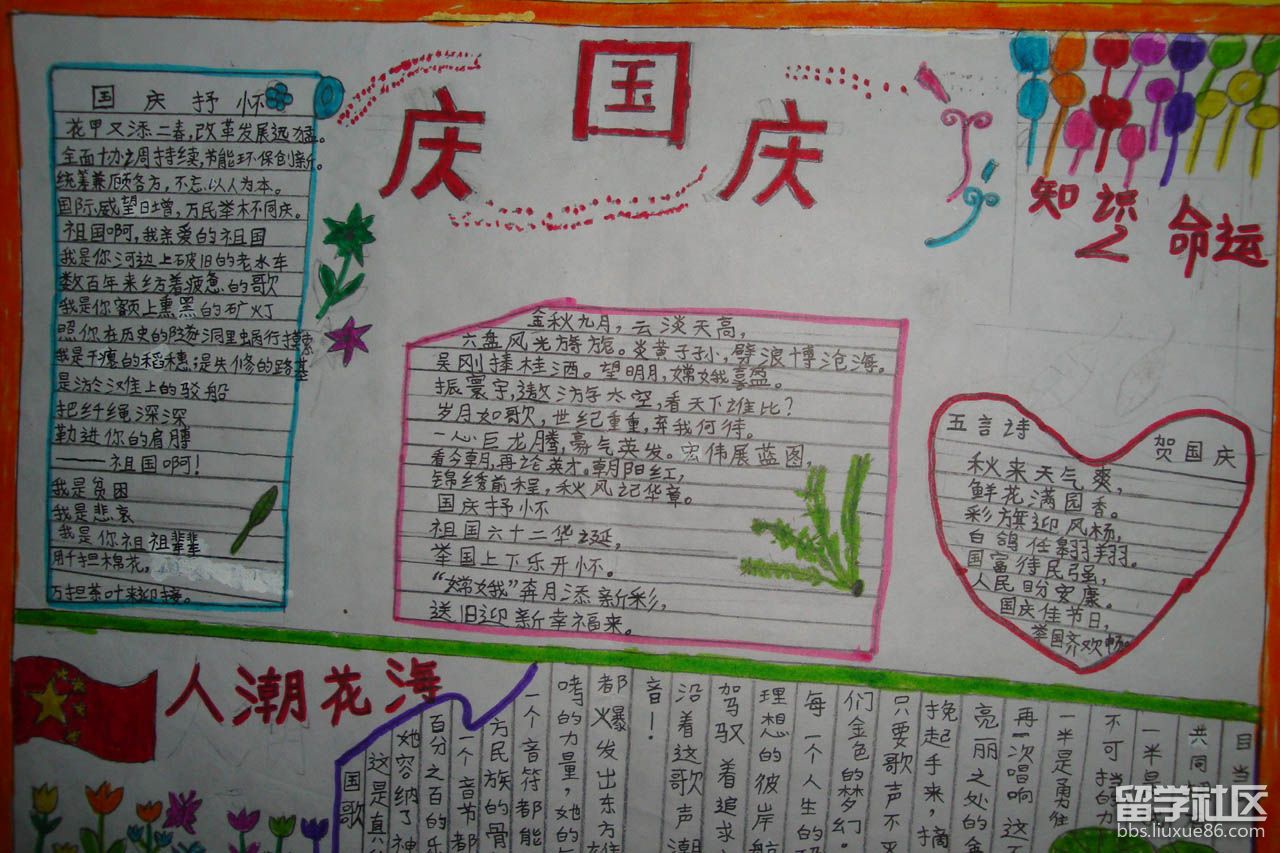 庆国庆
知识之命运
国庆抒怀
花甲又添二春,改革发展远方猛。
全面协之周持续,节能环保创新。
统筹兼顾各方,不忘以人为本。
国际威望日增,万民举杯同庆。
祖国啊,我亲爱的祖国
我是你河边上破旧的老水车
数百年来纺着疲惫的歌
我是你额上熏黑的矿灯
照你在历史的隧洞里蜗行摸索
我是干瘪的稻穗;是失修的路基
是淤滩上的驳船
把纤绳深深
勒进你的肩膊
——祖国啊!
我是贫困
我是悲哀
我是你祖祖辈辈
担棉花,
万担茶叶来迎接。
金秋九月,云淡天高,
六盘风光旖旎。炎黄子孙,劈浪博沧海。
吴刚捧桂酒。望明月,嫦娥喜盈。
振寰宇,遨游太空,看天下谁比?
岁月如歌,世纪重重,弃我何待。
一心巨龙腾,豪气英发。宏伟展蓝图,
看今朝,再论英才。朝阳红,
锦绣前程,秋风记华章。
国庆抒怀
祖国六十二华诞,
举国上下乐开怀。
“嫦娥”奔月添新彩,
送旧迎新幸福来。
五言诗
贺国庆
秋来天气爽,
鲜花满园香。
彩旗迎风杨,
白鸽任翱翔。
国富待民强,
人民日分安康。
国庆佳节日,
举国齐欢畅。
人潮花海
目当
共同
一半是
不可挡的力
一半是勇往
再一次唱响这不
亮丽之处的金
挽起手来,摘
只要歌声不
们金色的梦幻。
每一个人生的
理想的彼岸航
驾驭着追求
沿着这歌声潮
音!
都爆发出东方雄
哮的力量,她的
一个音符都能
方民族的骨
一个音节都
百分之百的乐
她容纳了神
这是真
国歌
留学社区
bbs.liuxue86.com